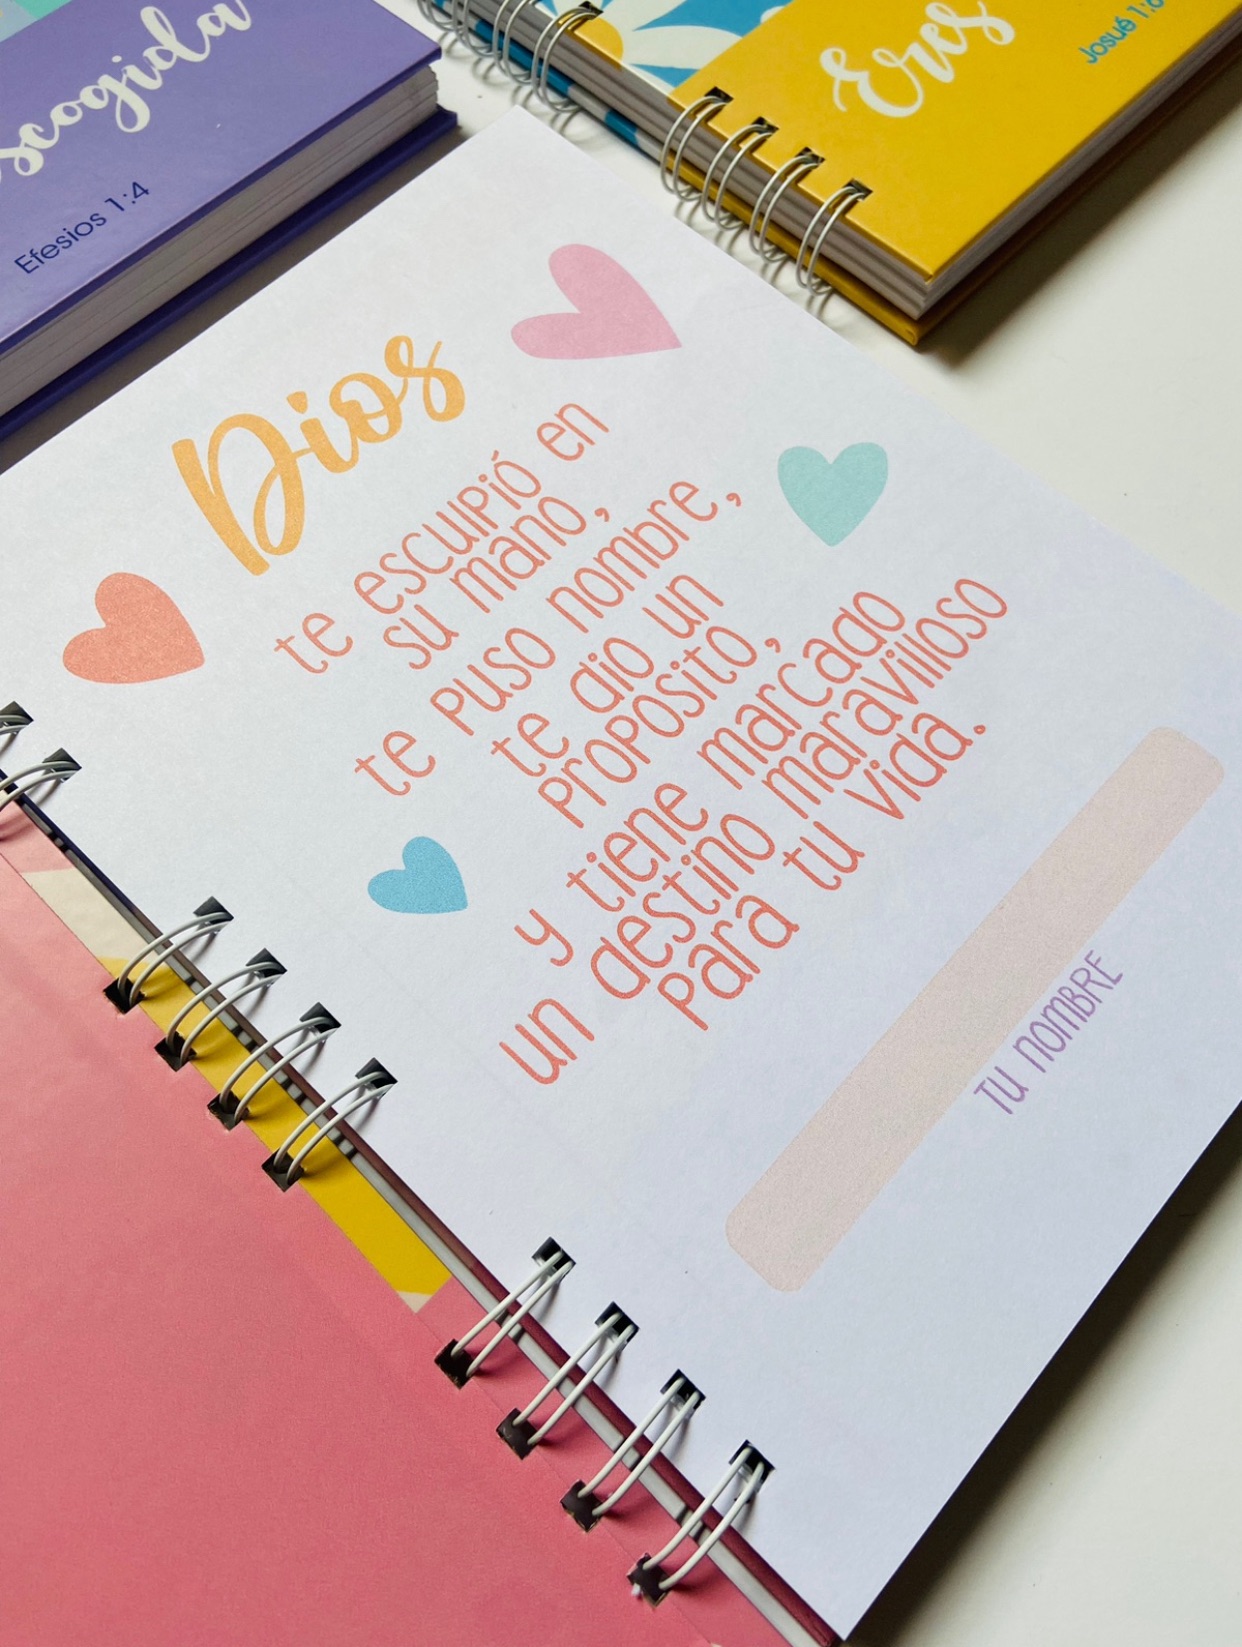 scogida
Efesios 1:4
Eres
Josué 1:
Dios
te esculpió en
su mano,
te puso nombre,
te dio un
proposito,
y tiene marcado
un destino maravilloso
para tu vida.
TU NOMBRE